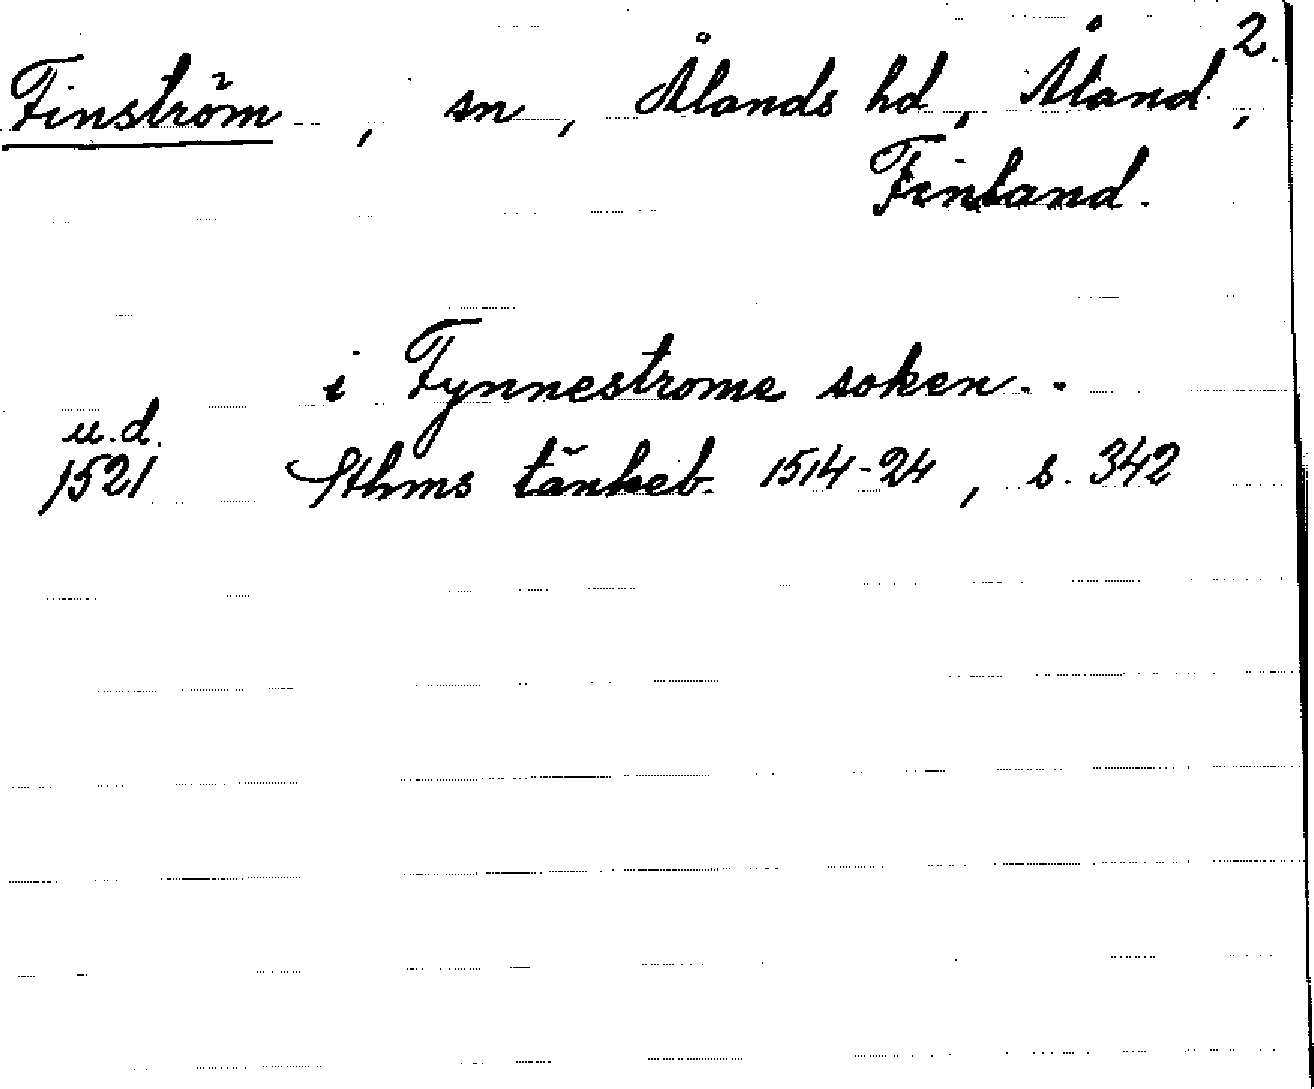 2.
Finström, sn, Ålands hd, Åland,
Finland.
i Fynnestrome soken..
u.d.
1521 Sthms tänkeb. 1514-24, s. 342